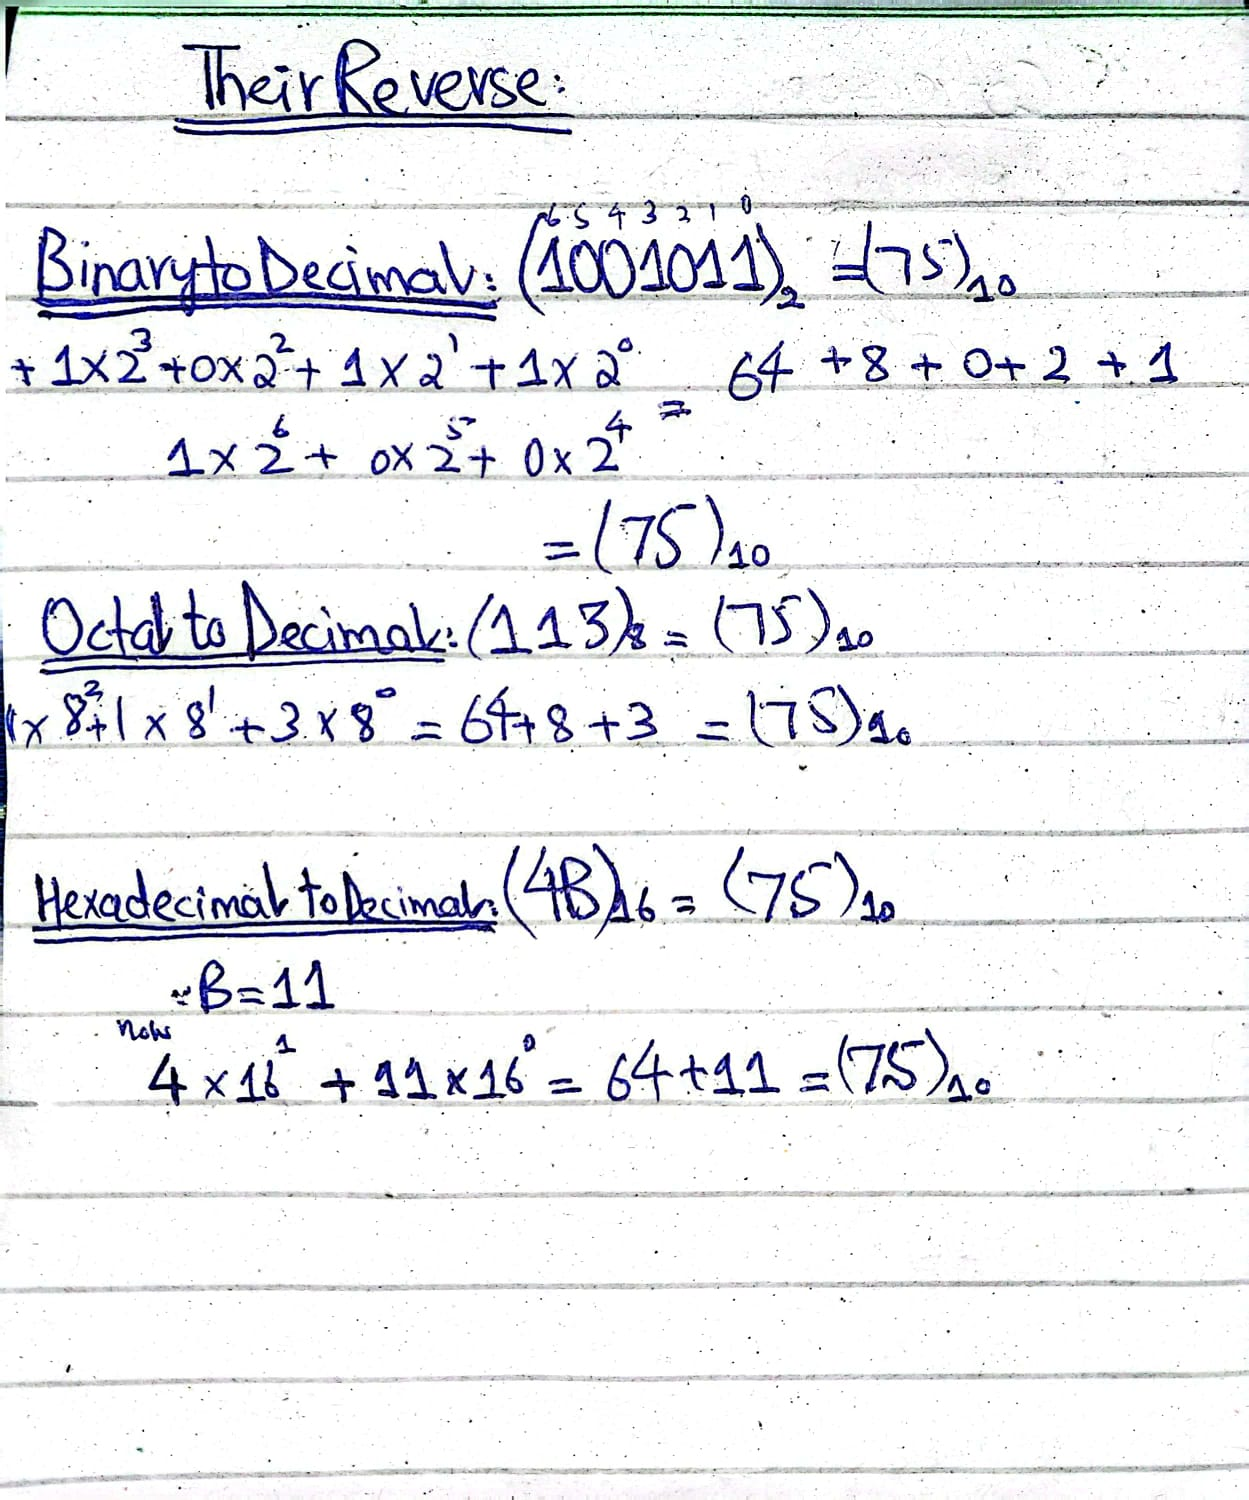 Their Reverse:
6 5 4 3 2 1 0
Binary to Decimal: (1001011)₂ = (75)₁₀
+ 1×2³ + 0×2² + 1×2¹ + 1×2⁰ = 64 + 8 + 0 + 2 + 1
1×2⁶ + 0×2⁵ + 0×2⁴
= (75)₁₀
Octal to Decimal: (113)₈ = (75)₁₀
1×8² + 1×8¹ + 3×8⁰ = 64 + 8 + 3 = (75)₁₀
Hexadecimal to Decimal: (4B)₁₆ = (75)₁₀
B = 11
Now
4×16¹ + 11×16⁰ = 64 + 11 = (75)₁₀